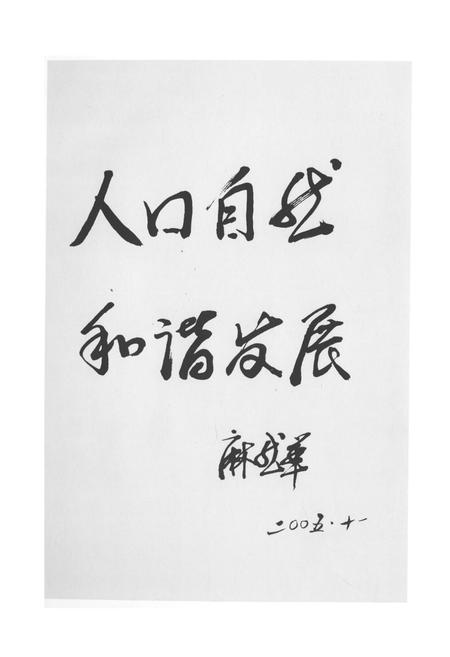 人口自然
和谐发展
麻
二〇〇五·十一